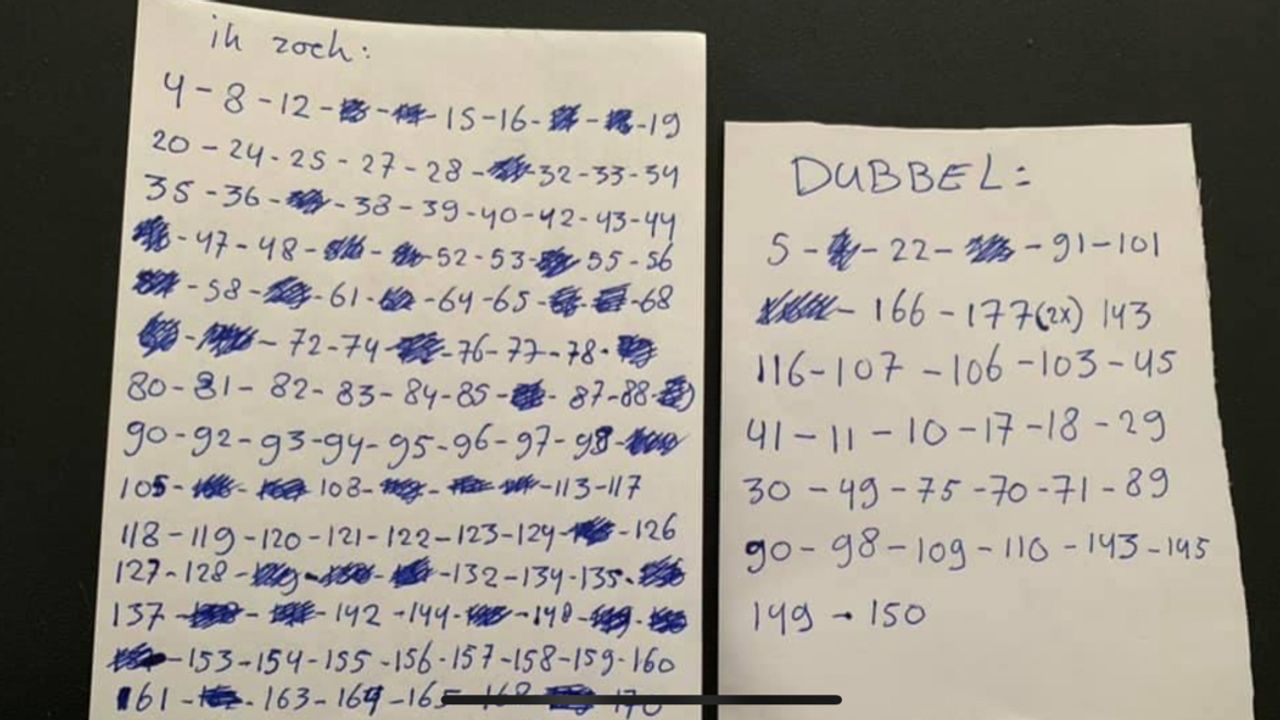 ik zoek:
4 - 8 - 12 - 15 - 16 - 19
20 - 24 - 25 - 27 - 28 - 32 - 33 - 34
35 - 36 - 38 - 39 - 40 - 42 - 43 - 44
47 - 48 - 52 - 53 - 55 - 56
58 - 61 - 64 - 65 - 68
72 - 74 - 76 - 77 - 78 -
80 - 81 - 82 - 83 - 84 - 85 - 87 - 88 -
90 - 92 - 93 - 94 - 95 - 96 - 97 - 98 -
105 - 108 - 113 - 117
118 - 119 - 120 - 121 - 122 - 123 - 124 - 126
127 - 128 - 132 - 134 - 135 -
137 - 142 - 144 - 148 -
153 - 154 - 155 - 156 - 157 - 158 - 159 - 160
161 - 163 - 164 - 165 168 170
DUBBEL:
5 - 22 - 91 - 101
166 - 177 (2x) 143
116 - 107 - 106 - 103 - 45
41 - 11 - 10 - 17 - 18 - 29
30 - 49 - 75 - 70 - 71 - 89
90 - 98 - 109 - 110 - 143 - 145
149 - 150